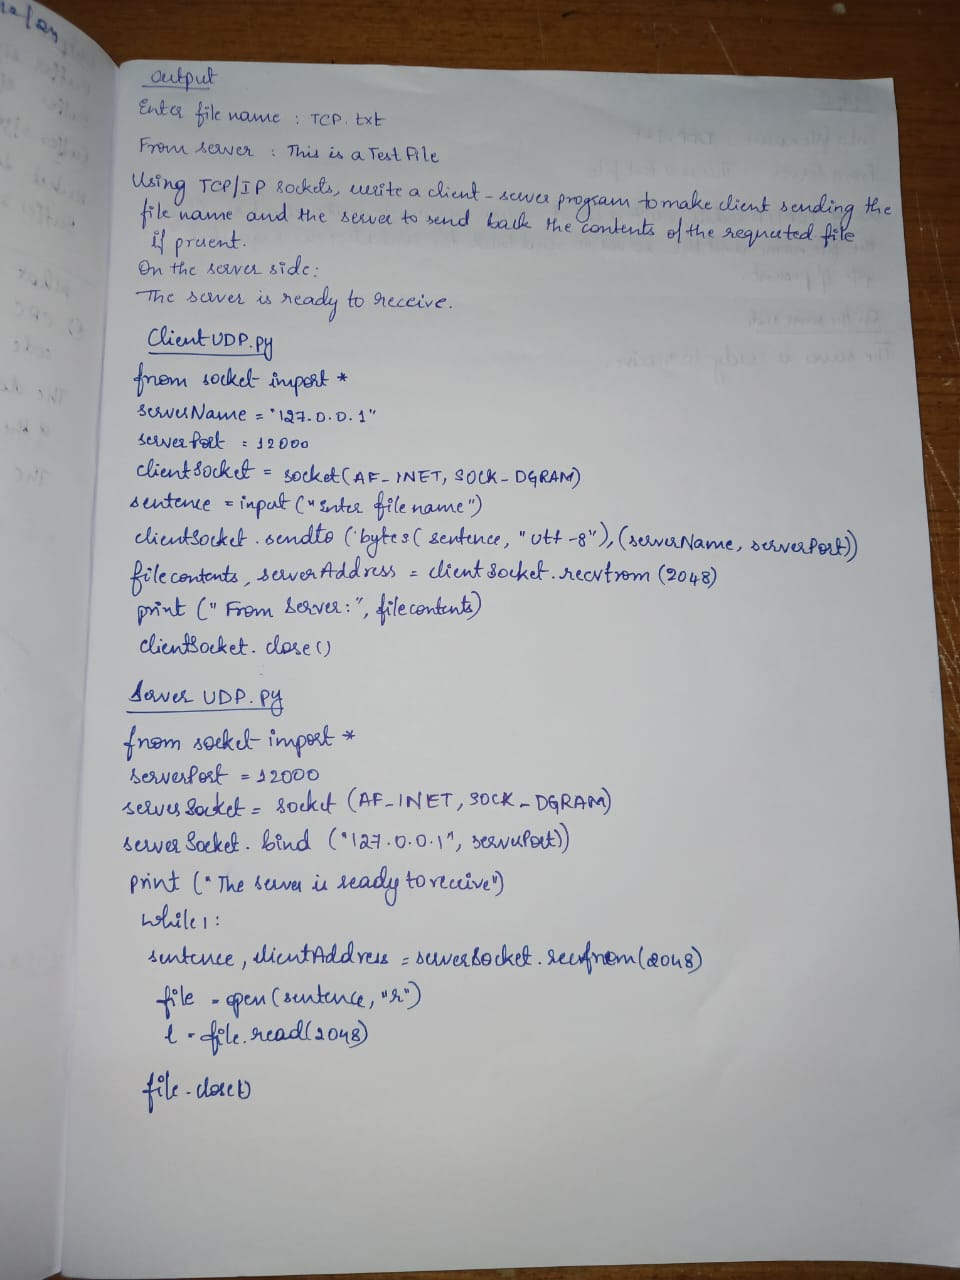 output
Enter file name : TCP.txt
From server : This is a Test File
Using TCP/IP sockets, write a client-server program to make client sending the
file name and the server to send back the contents of the requested file
if present.
On the server side:
The server is ready to receive.
Client UDP.py
from socket import *
serverName = "127.0.0.1"
serverPort = 12000
clientSocket = socket(AF-INET, SOCK-DGRAM)
sentence = input ("Enter file name")
clientSocket.sendto (bytes(sentence, "utf-8"), (serverName, serverPort))
filecontents, serverAddress = clientSocket.recvfrom (2048)
print ("From Server:", filecontents)
clientSocket.close()
Server UDP.py
from socket import *
serverPort = 12000
serverSocket = socket (AF-INET, SOCK-DGRAM)
serverSocket.bind ("127.0.0.1", serverPort))
print ("The server is ready to receive")
while 1:
sentence, clientAddress = serverSocket.recvfrom(2048)
file = open(sentence, "r")
l = file.read(2048)
file.close()